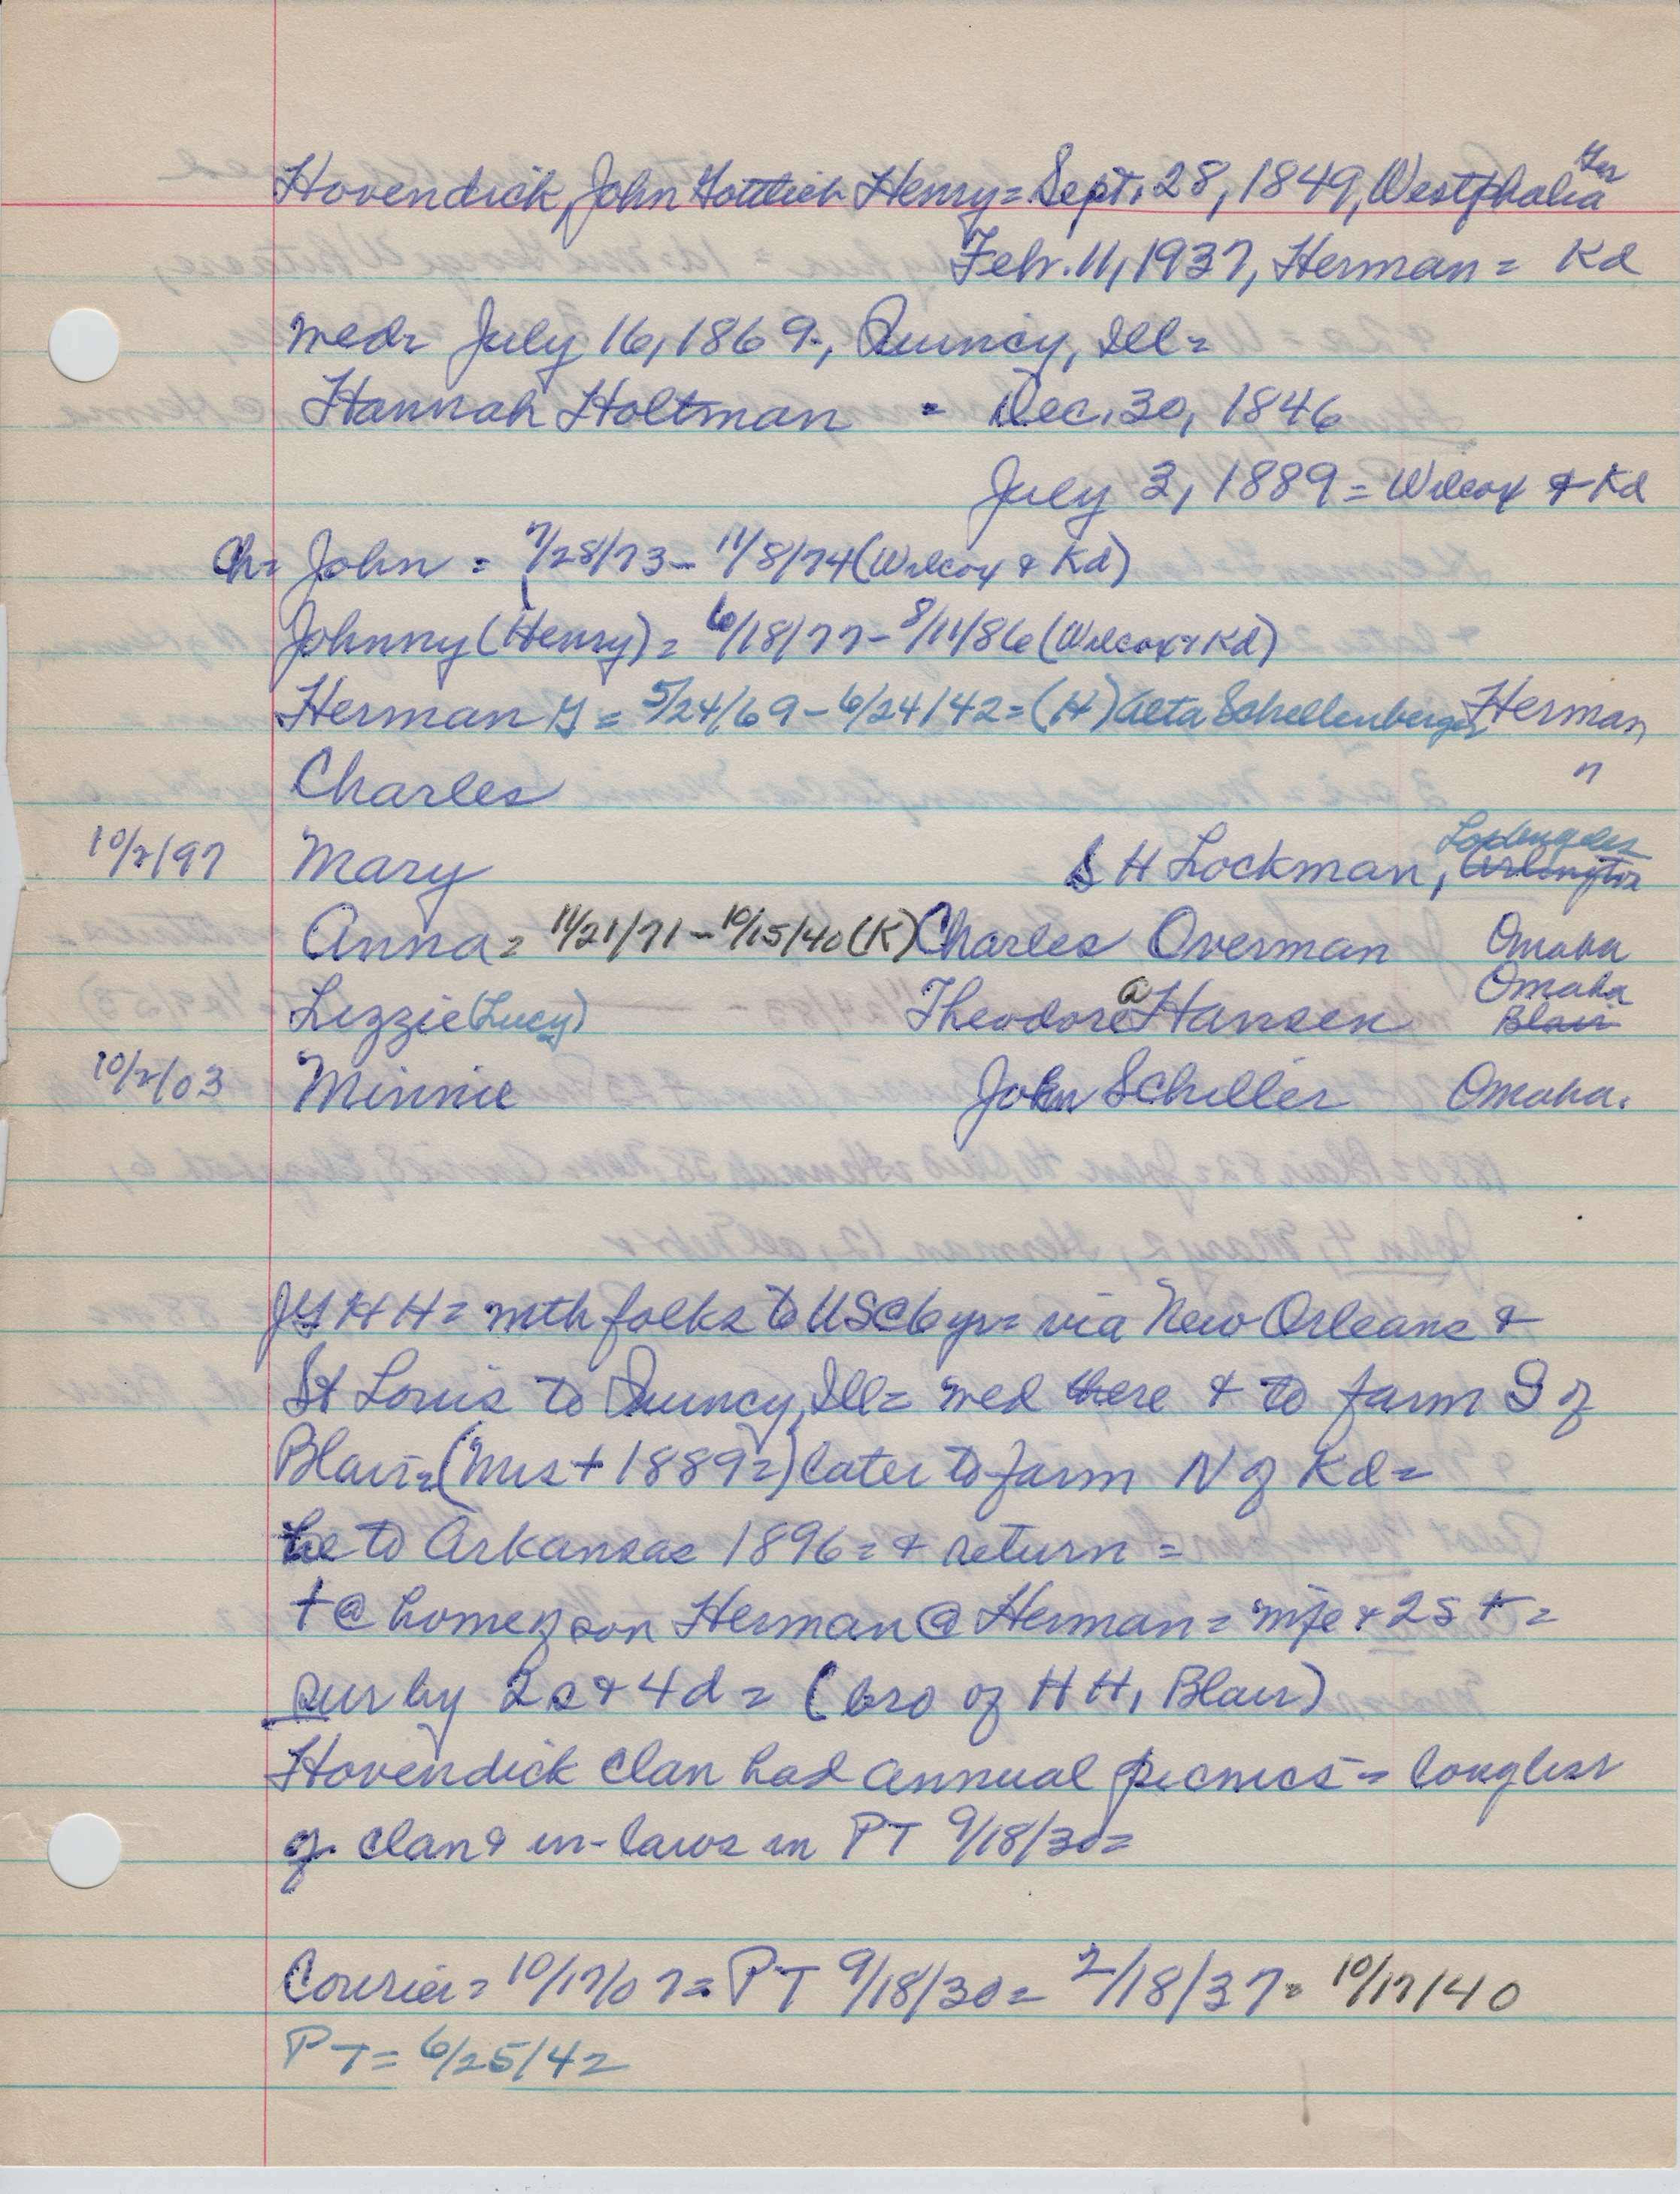 Hovendick, John Gottlieb Henry = Sept. 28, 1849, Westphalia Ger
Feb. 11, 1937, Herman = Kd
med = July 16, 1869, Quincy, Ill =
Hannah Holtman = Dec. 30, 1846
July 3, 1889 = Wilcox & Kd
Ch = John = 7/28/73 - 11/8/74 (Wilcox & Kd)
Johnny (Henry) = 6/18/77 - 8/11/86 (Wilcox & Kd)
Herman G = 5/24/69 - 6/24/42 = (H) Alta Schellenberger Herman
Charles "
10/2/97 Mary S H Lockman, Los Angeles Arlington
Anna = 11/21/71 - 10/15/40 (K) Charles Overman Omaha
Lizzie (Lucy) Theodore a Hansen Omaha Blair
10/2/03 Minnie John Schiller Omaha.
JGHH = with folks to US @ 6 yr = via New Orleans &
St Louis to Quincy, Ill = med there & to farm S of
Blair = (Mrs + 1889 =) later to farm N of Kd =
he to Arkansas 1896 = & return =
+ @ home of son Herman @ Herman = wife & 2s + =
sur by 2s & 4d = (bro of HH, Blair)
Hovendick clan had annual picnics = long list
of clan & in-laws in PT 9/18/30 =
Courier = 10/17/07 = PT 9/18/30 = 2/18/37 = 10/17/40
PT = 6/25/42